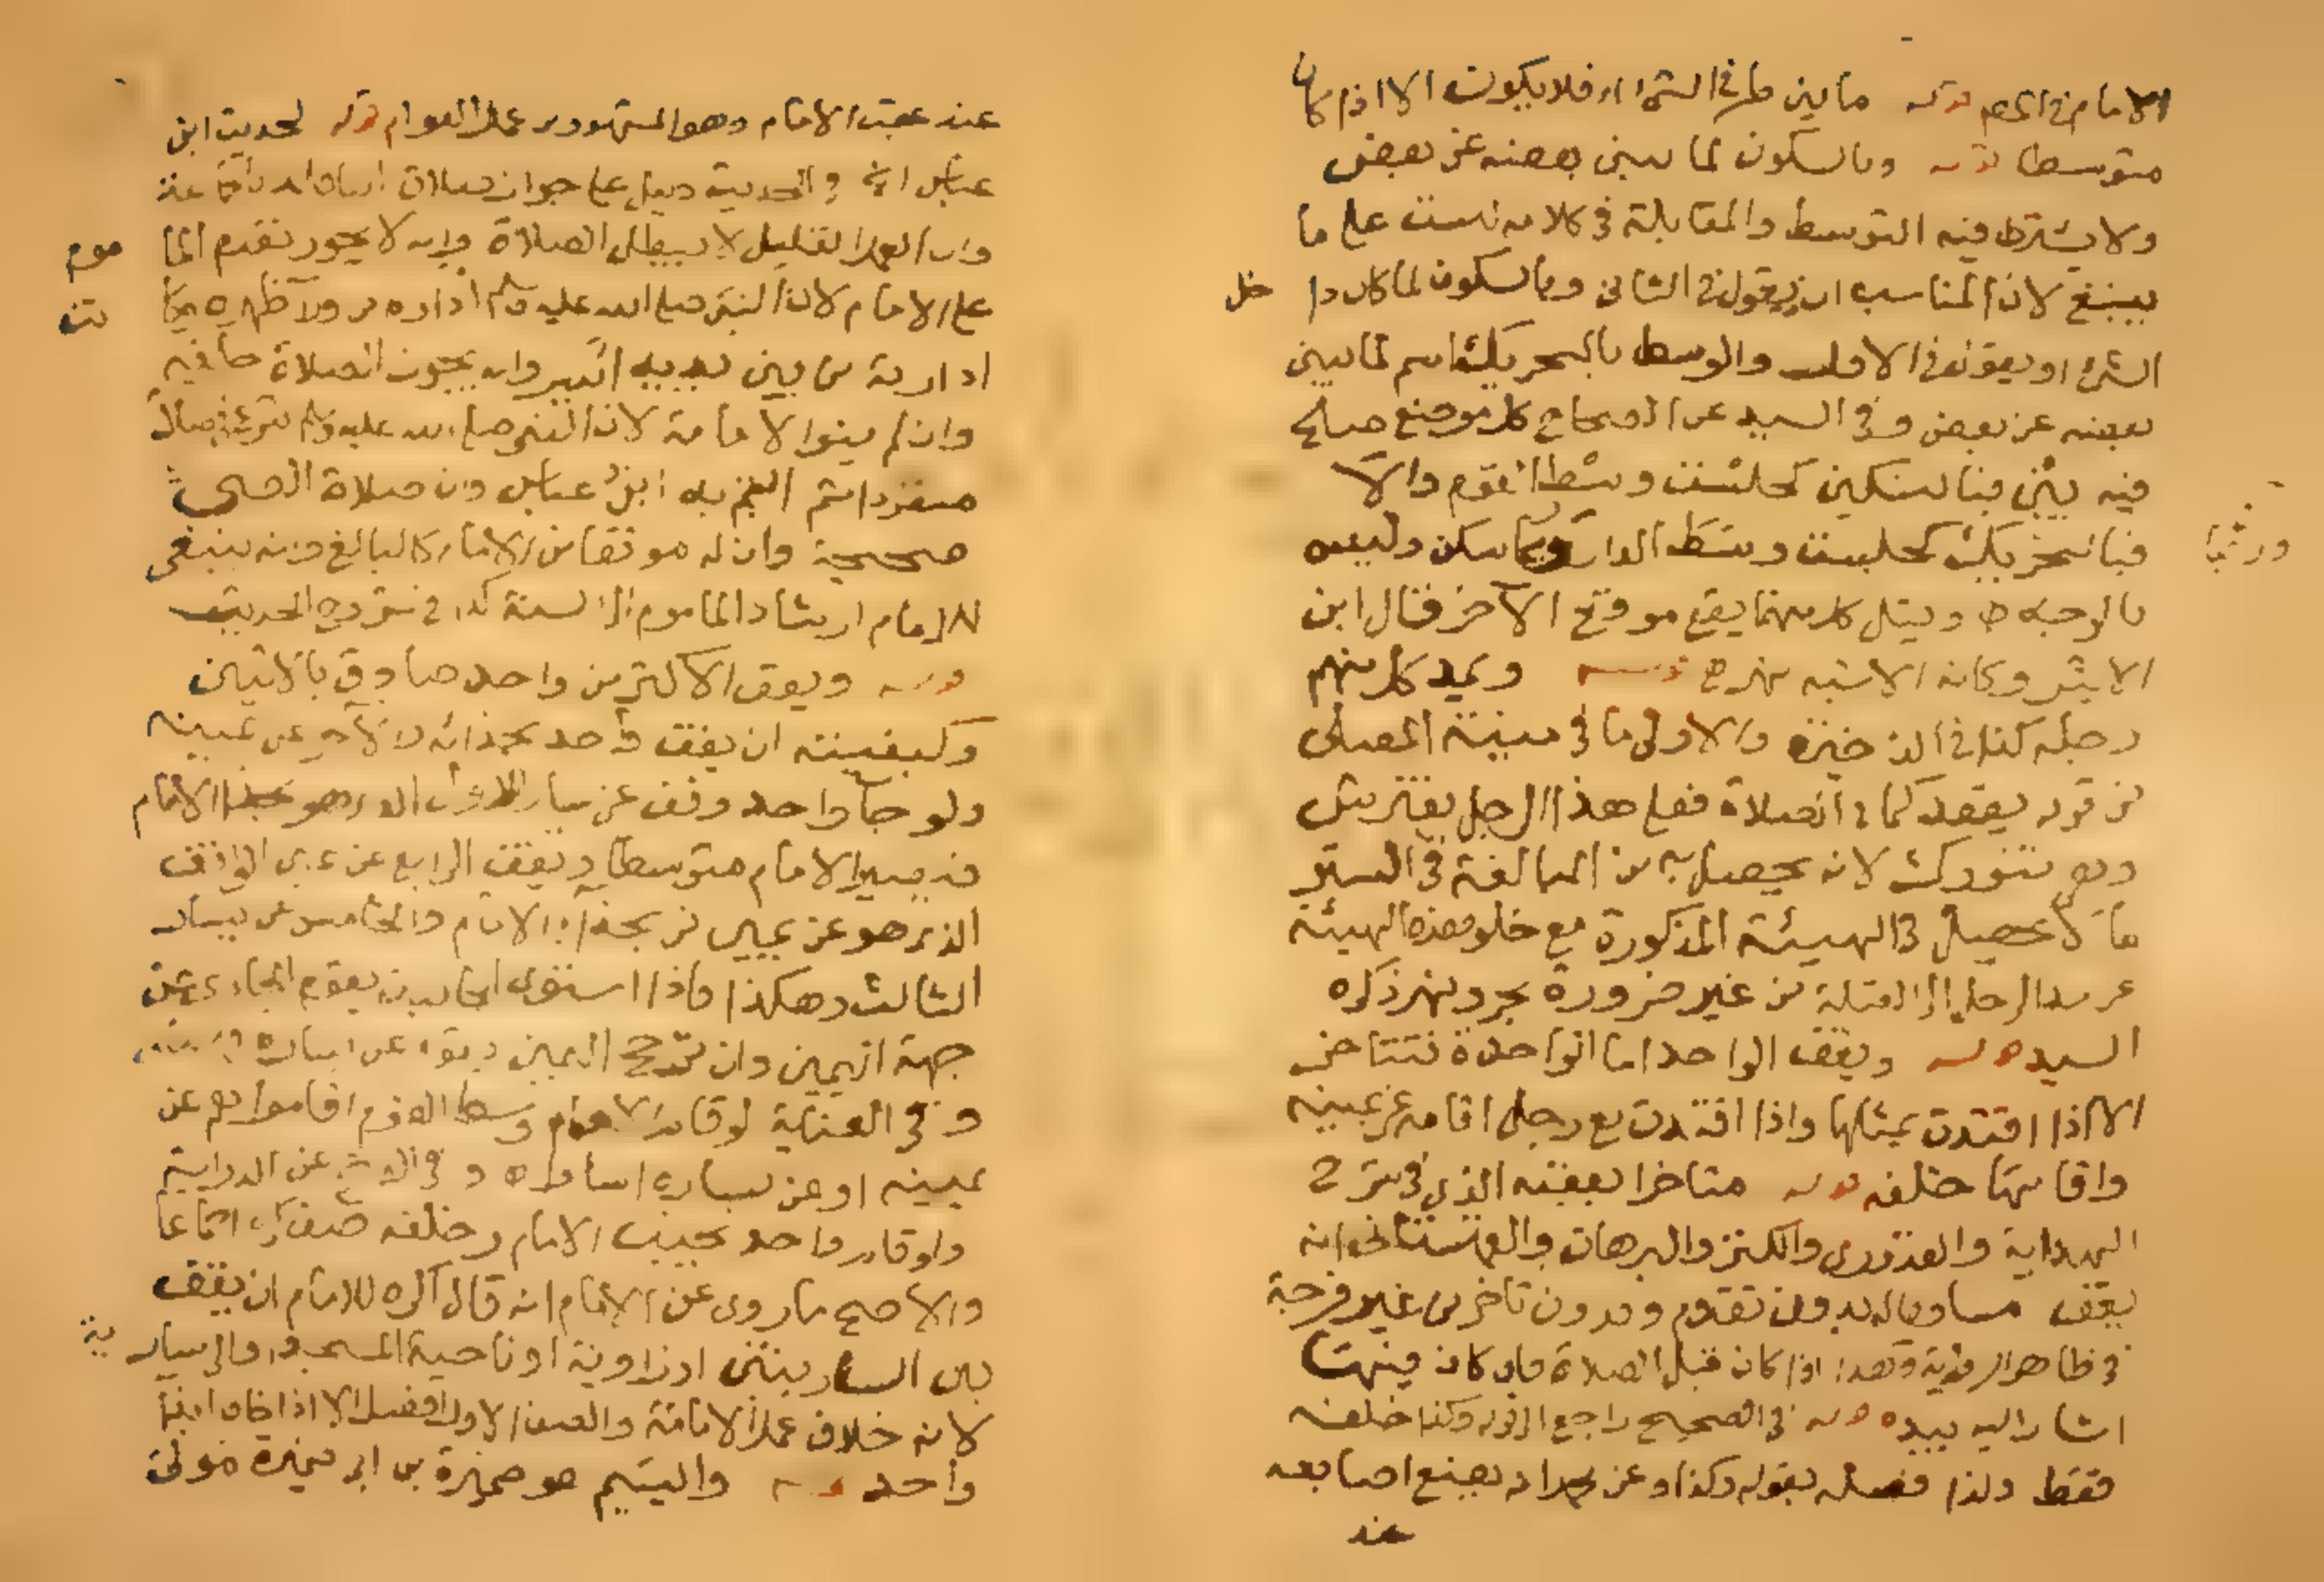 الامام في الحكم قوله ما بين طرفي الشيء فلا يكون الا اذا كان
متوسطا قوله وبالسكون لما يبين بعضه عن بعض
ولا يشترط فيه التوسط والمقابلة في كلامه ليست على ما
ينبغي لان المناسب ان يقول في الثاني وبالسكون لما كان داخل
الشيء او يقول في الاول والوسط بالتحريك اسم لما يبين
بعضه عن بعض وفي السيد عن الصحاح كل موضع صلح
فيه بين فبالتسكين كجلست وسط القوم والا
فبالتحريك كجلست وسط الدار وربما سكن وليس
ورثما
بالوجه ط وقيل كل منهما يقع موقع الاخر قال ابن
الاثير وكانه الاشبه نهر ح قوله ويمد كل منهم
رجله كذا في الذخيرة والاولى ما في منية المصلى
من قوله يقعد كما في الصلاة فعلى هذا الرجل يفترش
وهي تتورك لانه يحصل به من المبالغة في الستر
ما لا يحصل في الهيئة المذكورة مع خلو هذه الهيئة
عن مد الرجل الى القبلة من غير ضرورة بحر ونهر ذكره
السيد قوله ويقف الواحد اما الواحدة فتتاخر
الا اذا اقتدت بمثلها واذا اقتدت مع رجل اقامه عن يمينه
واقامتها خلفه قوله متاخرا بعقبه الذي في شرح
الهداية والقدوري والكنز والبرهان والقهستاني انه
يقف مساويا له بدون تقدم وبدون تاخر من غير فرجة
في ظاهر الرواية وهذا اذا كان قبل الصلاة فان كان فيها
اشار اليه بيده قوله في الصحيح راجع الى قوله وكذا خلفه
فقط ولذا فصله بقوله وكذا وعن محمد انه يضع اصابعه
عند
عند عقب الامام وهو المشهور من عمل العوام قوله لحديث ابن
عباس الخ والحديث دليل على جواز صلاة
وان العمل القليل لا يبطل الصلاة وانه لا يجوز تقدم الماموم
على الامام لان النبي صلى الله عليه وسلم اداره من ورآ ظهره وكانت
ادارته من بين يديه ايسر وانه يجوز الصلاة خلفه
وان لم ينو الامامة لان النبي صلى الله عليه وسلم شرع في صلاته
منفردا ثم ائتم به ابن عباس وان صلاة الصبي
صحيحة وان له موقفا من الامام كالبالغ وانه ينبغي
للامام ارشاد الماموم الى السنة كذا في شروح الحديث
قوله ويقف الاكثر من واحد صادق بالاثنين
وكيفيته ان يقف واحد بحذائه والاخر عن يمينه
ولو جآ واحد وقف عن يسار الاول الذي هو بحذا الامام
فيصير الامام متوسطا ويقف الرابع عن يمين الواقف
الذي هو عن يمين من بحذآ الامام والخامس عن يسار
الثالث وهكذا فاذا استوى الجانبان يقوم الجائي عن
جهة اليمين وان ترجح اليمين يقوم عن يساره
وفي العناية لو قام الامام وسط القوم او قاموا هم عن
يمينه او عن يساره اساوا وفي الفتح عن الدراية
ولو قام واحد بجنب الامام وخلفه صف كره اجماعا
والاصح ما روي عن الامام انه قال اكره للامام ان يقف
بين الساريتين او زاوية او ناحية المسجد او الى سارية
لانه خلاف عمل الامامة والصف الاول افضل الا اذا خاف ايذا
واحد قوله واليتيم هو ضميرة بن ابي ضميرة مولى